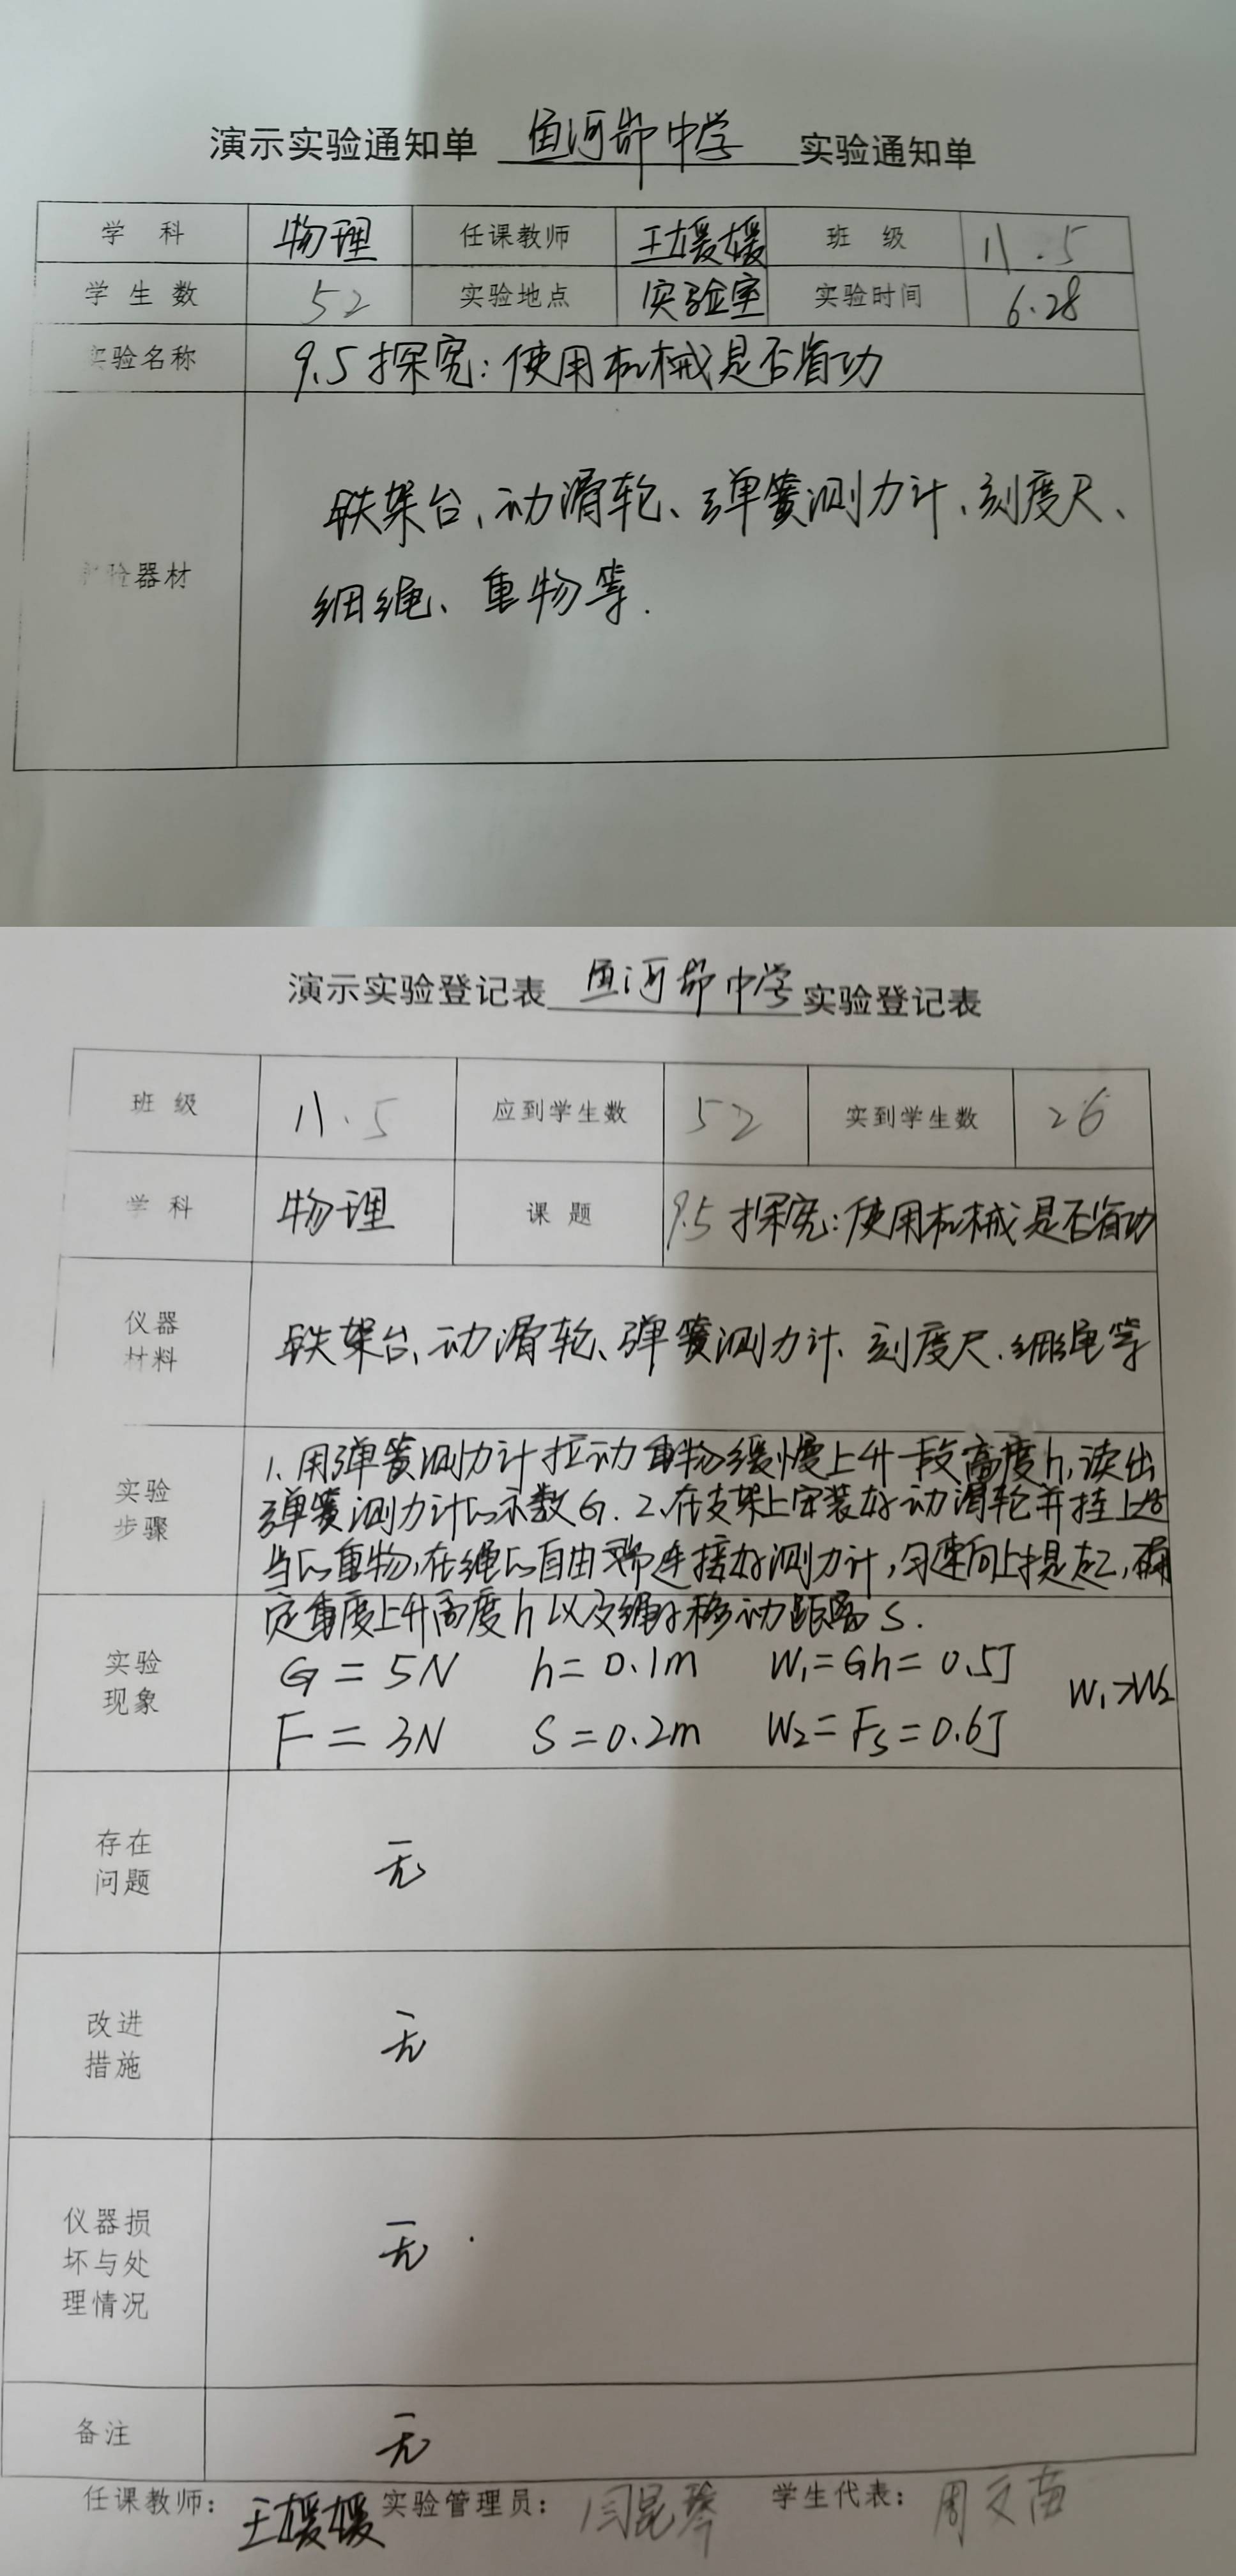 演示实验通知单 鱼河峁中学 实验通知单
学 科 物理 任课教师 王媛媛 班 级 八.5
学 生 数 52 实验地点 实验室 实验时间 6.28
实验名称 9.5 探究:使用机械是否省功
实验器材 铁架台、动滑轮、弹簧测力计、刻度尺、
细绳、重物等.
演示实验登记表 鱼河峁中学 实验登记表
班 级 八.5 应到学生数 52 实到学生数 26
学 科 物理 课 题 9.5 探究:使用机械是否省功
仪器
材料
铁架台、动滑轮、弹簧测力计、刻度尺、细绳等
实验
步骤
1、用弹簧测力计拉动重物缓慢上升一段高度h,读出
弹簧测力计的示数G. 2、在支架上安装好动滑轮并挂上适
当的重物,在绳的自由端连接好测力计,匀速向上提起,确
定重度上升高度h以及绳子移动距离S.
实验
现象
G=5N h=0.1m W₁=Gh=0.5J
W₁>W₂
F=3N S=0.2m W₂=Fs=0.6J
存在
问题
无
改进
措施
无
仪器损
坏与处
理情况
无
备注 无
任课教师: 王媛媛 实验管理员: 闫昆琴 学生代表: 周文苗